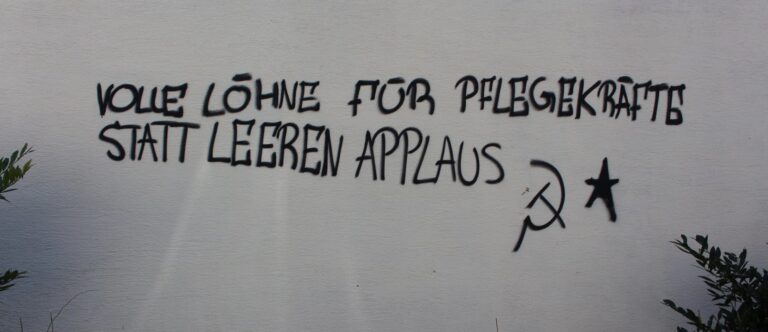 VOLLE LÖHNE FÜR PFLEGEKRÄFTE
STATT LEEREN APPLAUS